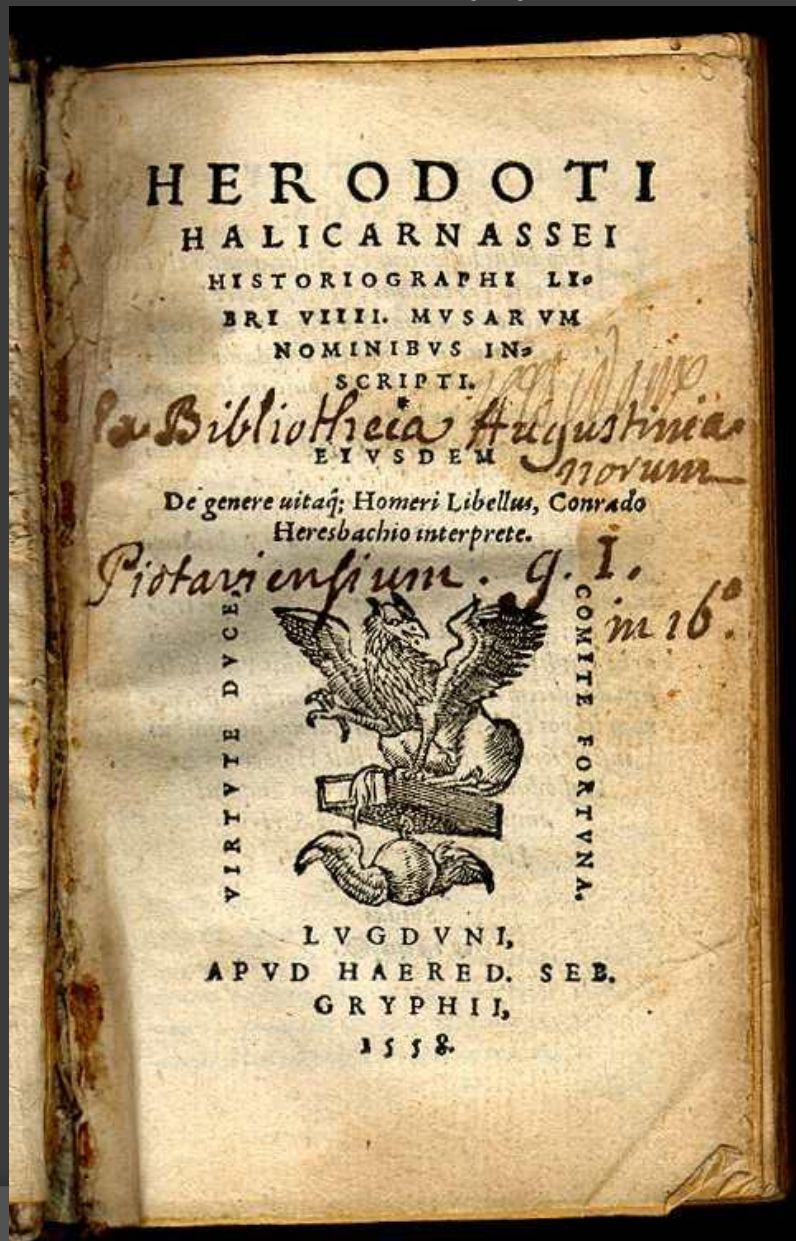 HERODOTI
HALICARNASSEI
HISTORIOGRAPHI LI-
BRI VIIII. MVSARVM
NOMINIBVS IN-
SCRIPTI.
*
Bibliotheca Augustinia-
EIVSDEM
norum
De genere uitaq́; Homeri Libellus, Conrado
Heresbachio interprete.
Pictaviensium. q. I.
in 16°.
VIRTVTE DVCE,
COMITE FORTVNA.
LVGDVNI,
APVD HAERED. SEB.
GRYPHII,
1558.